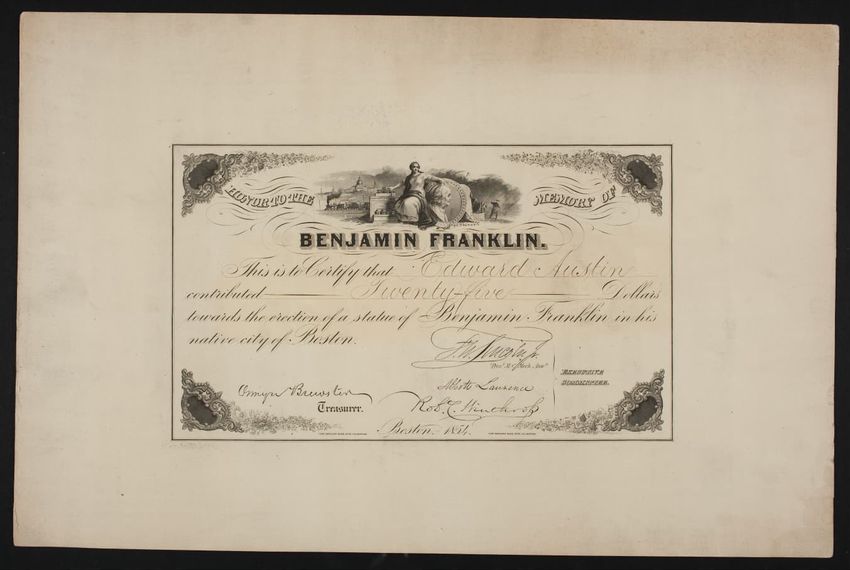 HONOR TO THE MEMORY OF
BENJAMIN FRANKLIN.
This is to Certify that Edward Austin
contributed Twenty-five Dollars
towards the erection of a statue of Benjamin Franklin in his
native city of Boston.
F. W. Lincoln, Jr.
EXECUTIVE
COMMITTEE.
Osmyn Brewster
Treasurer.
Abbott Lawrence
Robt. C. Winthrop
Boston, 1854.